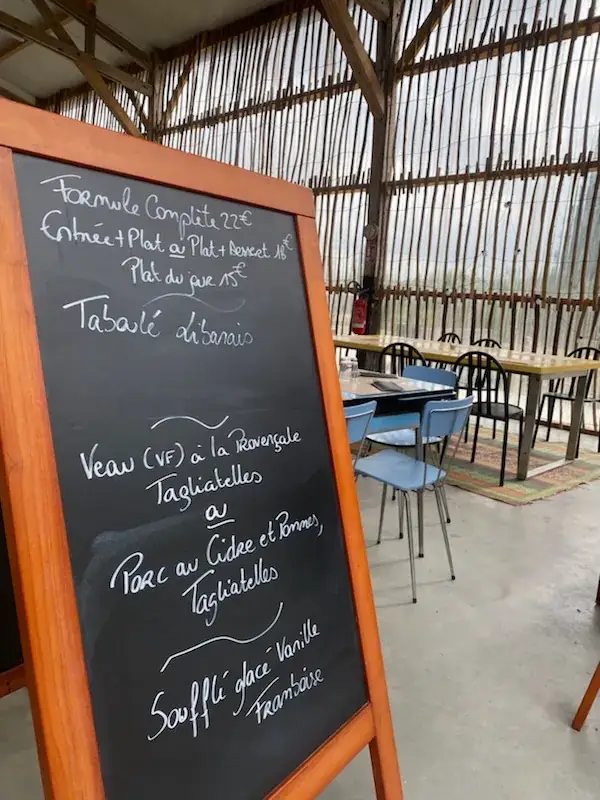 Formule Complète 22€
Entrée + Plat ou Plat + Dessert 18€
Plat du jour 15€
Taboulé Libanais
Veau (VF) à la Provençale
Tagliatelles
ou
Porc au Cidre et Pommes,
Tagliatelles
Soufflé glacé Vanille
Framboise